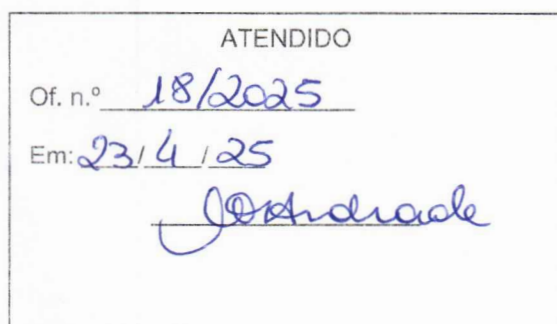 ATENDIDO
Of. n.º 18/2025
Em: 23/4/25
Andrade